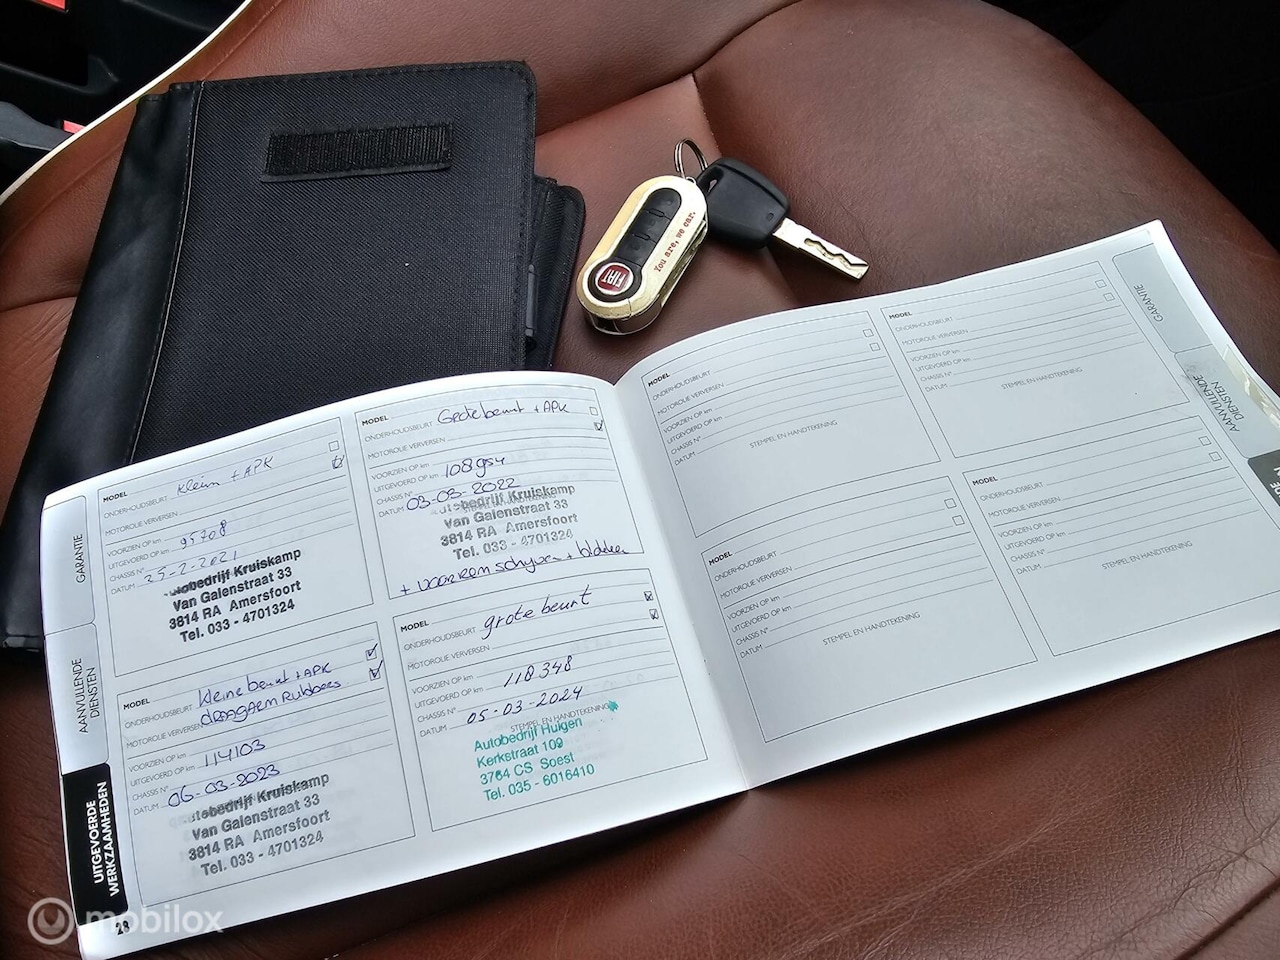 You are, we car.
FIAT
GARANTIE
AANVULLENDE
DIENSTEN
UITGEVOERDE
WERKZAAMHEDEN
28
MODEL
ONDERHOUDSBEURT klein + APK
MOTOROLIE VERVERSEN
VOORZIEN OP km
UITGEVOERD OP km 95708
CHASSIS N°
DATUM 25-2-2021
Autobedrijf Kruiskamp
Van Galenstraat 33
3814 RA Amersfoort
Tel. 033 - 4701324
MODEL
ONDERHOUDSBEURT Grote beurt + APK
MOTOROLIE VERVERSEN
VOORZIEN OP km
UITGEVOERD OP km 108954
CHASSIS N°
DATUM 03-03-2022
Autobedrijf Kruiskamp
Van Galenstraat 33
3814 RA Amersfoort
Tel. 033 - 4701324
MODEL
ONDERHOUDSBEURT kleine beurt + APK
MOTOROLIE VERVERSEN draagarm Rubbers
VOORZIEN OP km
UITGEVOERD OP km 114103
CHASSIS N°
DATUM 06-03-2023
Autobedrijf Kruiskamp
Van Galenstraat 33
3814 RA Amersfoort
Tel. 033 - 4701324
MODEL
ONDERHOUDSBEURT grote beurt
MOTOROLIE VERVERSEN
VOORZIEN OP km
UITGEVOERD OP km 118348
CHASSIS N°
DATUM 05-03-2024
STEMPEL EN HANDTEKENING
Autobedrijf Huigen
Kerkstraat 109
3764 CS Soest
Tel. 035 - 6016410
MODEL
ONDERHOUDSBEURT
MOTOROLIE VERVERSEN
VOORZIEN OP km
UITGEVOERD OP km
CHASSIS N°
DATUM
STEMPEL EN HANDTEKENING
MODEL
ONDERHOUDSBEURT
MOTOROLIE VERVERSEN
VOORZIEN OP km
UITGEVOERD OP km
CHASSIS N°
DATUM
STEMPEL EN HANDTEKENING
MODEL
ONDERHOUDSBEURT
MOTOROLIE VERVERSEN
VOORZIEN OP km
UITGEVOERD OP km
CHASSIS N°
DATUM
STEMPEL EN HANDTEKENING
MODEL
ONDERHOUDSBEURT
MOTOROLIE VERVERSEN
VOORZIEN OP km
UITGEVOERD OP km
CHASSIS N°
DATUM
STEMPEL EN HANDTEKENING
GARANTIE
AANVULLENDE
DIENSTEN
mobilox